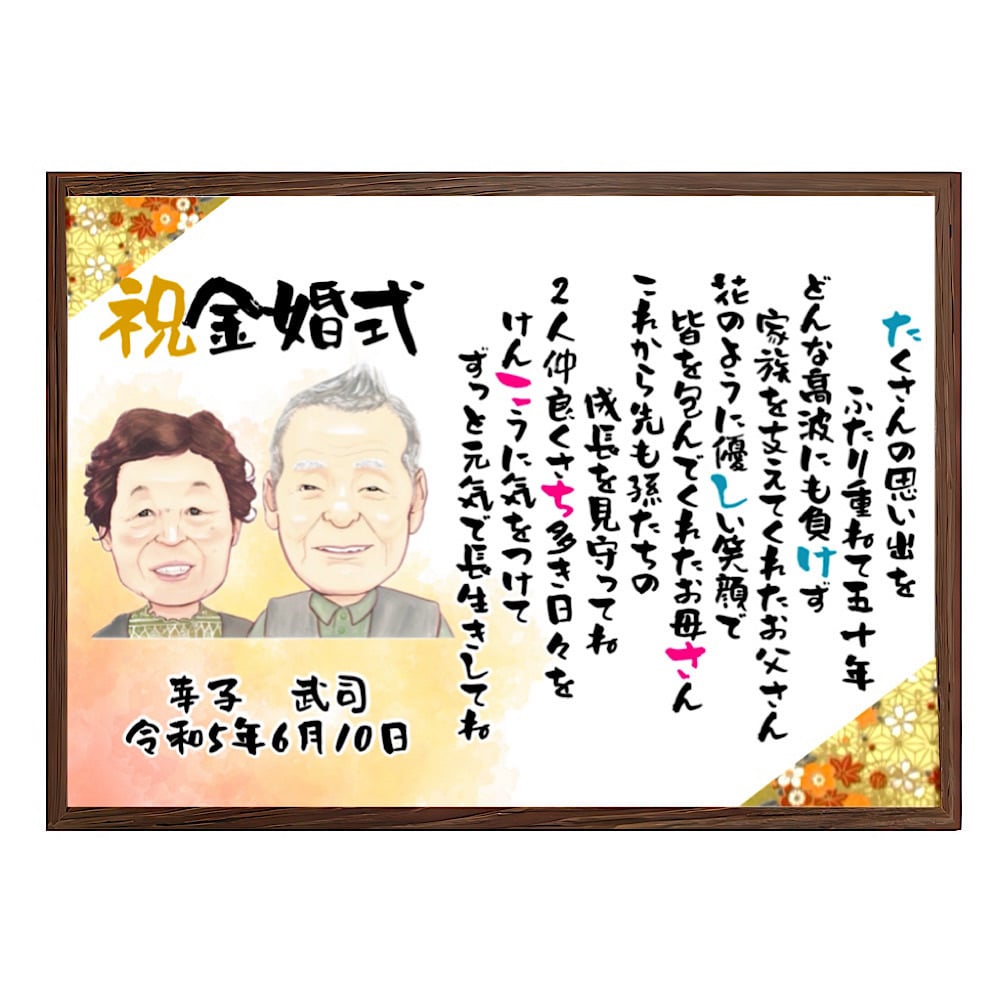 祝金婚式
たくさんの思い出を
ふたり重ねて五十年
どんな高波にも負けず
家族を支えてくれたお父さん
花のように優しい笑顔で
皆を包んでくれたお母さん
これから先も孫たちの
成長を見守ってね
2人仲良くさち多き日々を
けんこうに気をつけて
ずっと元気で長生きしてね
幸子 武司
令和5年6月10日